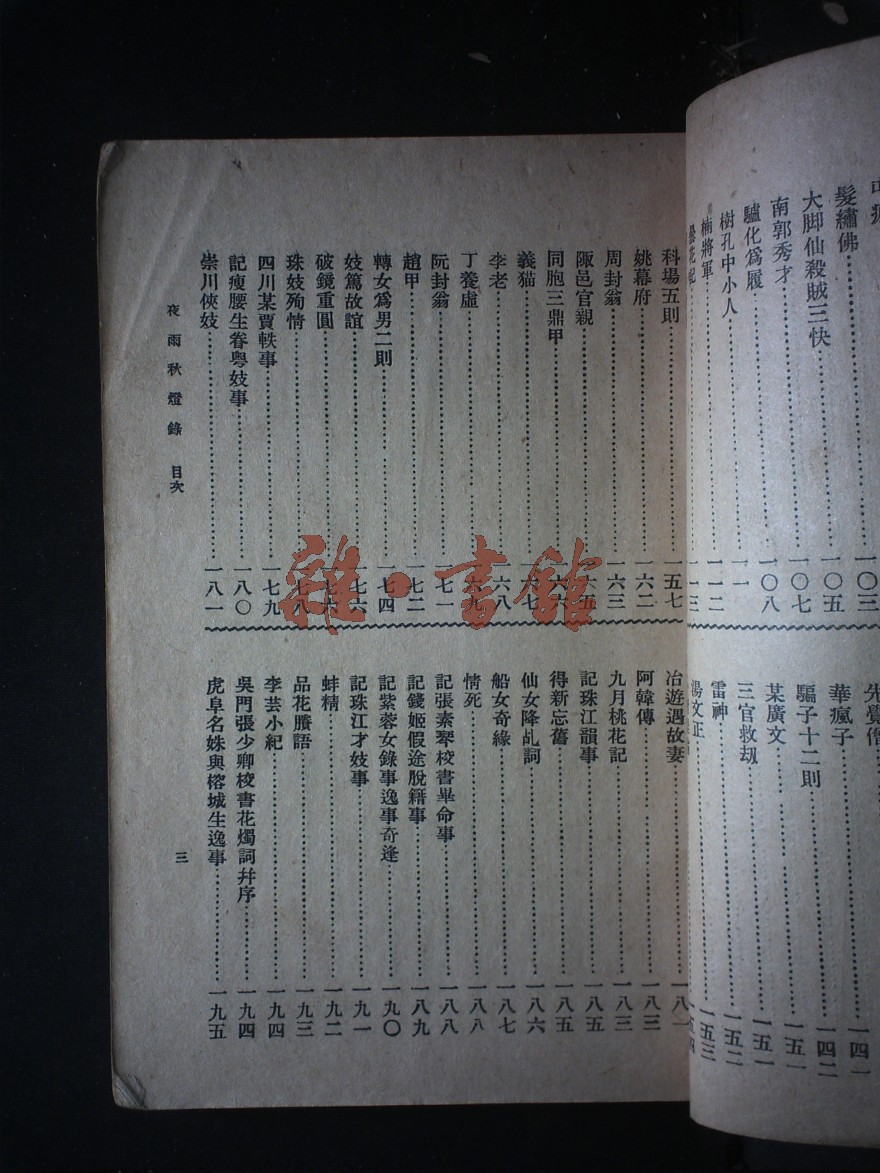 髮繡佛……一〇三
大脚仙殺賊三快……一〇五
南郭秀才……一〇七
驢化爲履……一〇八
樹孔中小人……一一一
楠將軍……一一二
曇花記……一一三
先覺僧
華瘋子……一四一
騙子十二則……一四二
某廣文……一五一
三官救劫……一五一
雷神……一五二
湯文正……一五三
科場五則……一五七
姚幕府……一六二
周封翁……一六三
陬邑官親……一六五
同胞三鼎甲……一六六
義猫……一六七
李老……一六八
丁養虛……一六九
阮封翁……一七一
趙甲……一七二
轉女爲男二則……一七四
妓篤故誼……一七六
破鏡重圓……一七六
珠妓殉情……一七八
四川某賈軼事……一七九
記瘦腰生眷粤妓事……一八〇
崇川俠妓……一八一
冶遊遇故妻……一八一
阿韓傳……一八三
九月桃花記……一八三
記珠江韻事……一八五
得新忘舊……一八五
仙女降乩詞……一八六
船女奇緣……一八七
情死……一八八
記張素琴校書畢命事……一八八
記錢姬假途脫籍事……一八九
記紫蓉女錄事逸事奇逢……一九〇
記珠江才妓事……一九一
蚌精……一九二
品花賸語……一九三
李芸小紀……一九四
吳門張少卿校書花燭詞幷序……一九四
虎阜名姝與榕城生逸事……一九五
夜雨秋燈錄 目次
三
雜·書館